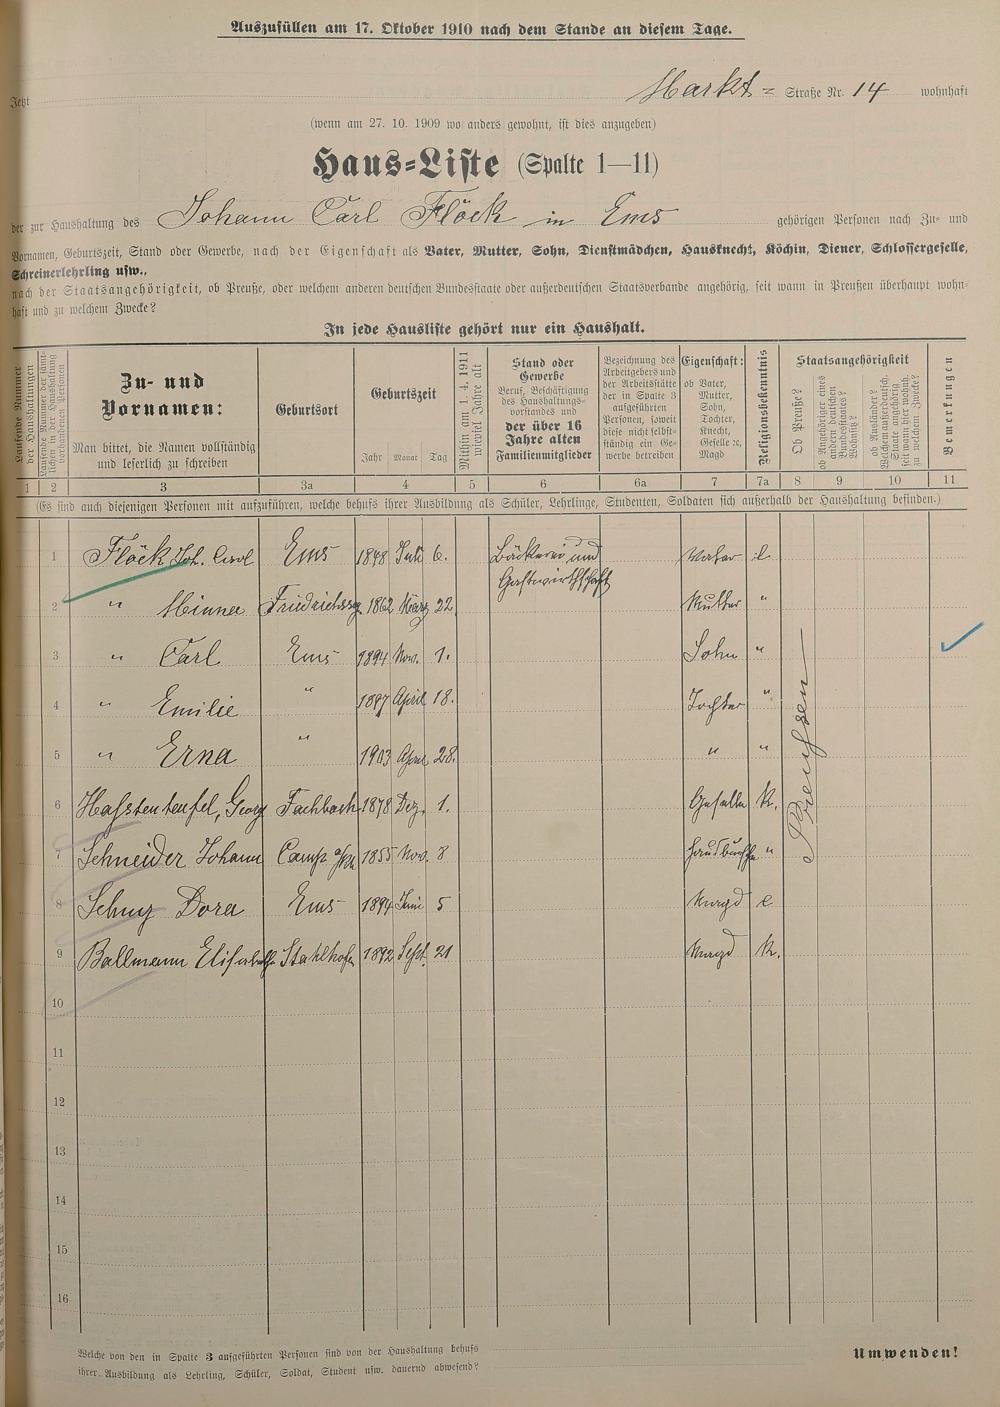 Auszufüllen am 17. Oktober 1910 nach dem Stande an diesem Tage.
Jetzt Markt= Straße Nr. 14 wohnhaft
(wenn am 27. 10. 1909 wo anders gewohnt, ist dies anzugeben)
Haus=Liste (Spalte 1—11)
der zur Haushaltung des Johann Carl Flöck in Ems gehörigen Personen nach Zu= und
Vornamen, Geburtszeit, Stand oder Gewerbe, nach der Eigenschaft als Vater, Mutter, Sohn, Dienstmädchen, Hausknecht, Köchin, Diener, Schlossergeselle,
Schreinerlehrling usw.,
nach der Staatsangehörigkeit, ob Preuße, oder welchem anderen deutschen Bundesstaate oder außerdeutschen Staatsverbande angehörig, seit wann in Preußen überhaupt wohn=
haft und zu welchem Zwecke?
In jede Hausliste gehört nur ein Haushalt.
Laufende Nummer
der Haushaltungen
Laufende Nummer der sämt-
lichen in der Haushaltung
vorhandenen Personen
Zu= und
Vornamen:
Man bittet, die Namen vollständig
und leserlich zu schreiben
Geburtsort
Geburtszeit
Jahr Monat Tag
Mithin am 1. 4. 1911
wieviel Jahre alt
Stand oder
Gewerbe
Beruf, Beschäftigung
des Haushaltungs-
vorstandes und
der über 16
Jahre alten
Familienmitglieder
Bezeichnung des
Arbeitgebers und
der Arbeitsstätte
der in Spalte 3
aufgeführten
Personen, soweit
diese nicht selbst-
ständig ein Ge-
werbe betreiben
Eigenschaft:
ob Vater,
Mutter,
Sohn,
Tochter,
Knecht,
Geselle ꝛc,
Magd
Religionsbekenntnis
Staatsangehörigkeit
Ob Preuße?
ob Angehöriger eines
andern deutschen
Bundesstaates?
Wohnsitz?
ob Ausländer?
Welchem außerdeutsch.
Staate angehörig
seit wann hier wohnh.
zu welchem Zwecke?
Bemerkungen
1 2 3 3a 4 5 6 6a 7 7a 8 9 10 11
(Es sind auch diejenigen Personen mit aufzuführen, welche behufs ihrer Ausbildung als Schüler, Lehrlinge, Studenten, Soldaten sich außerhalb der Haushaltung befinden.)
1 Flöck Joh. Carl Ems 1848 Juli 6. Bäckerei und Gastwirthschaft Vater e.
2 " Minna 1862 März 22 Mutter "
3 " Carl Ems 1894 Nov. 1. Sohn "
4 " Emilie " 1897 April 18. Tochter "
5 " Erna " 1903 April 28. " "
6 Hasstenteufel, Georg Fachbach 1878 Dez. 1. Geselle K.
7 Schneider Johann Camp a/Rh 1855 Nov. 8 Hausbursche "
8 Dora Ems 1894 Juni 5 Magd e
9 Ballmann Elisabeth Stahlhofen 1892 Sept. 21 Magd K.
Preussen
10
11
12
13
14
15
16
Welche von den in Spalte 3 aufgeführten Personen sind von der Haushaltung behufs
ihrer Ausbildung als Lehrling, Schüler, Soldat, Student usw. dauernd abwesend?
Umwenden!